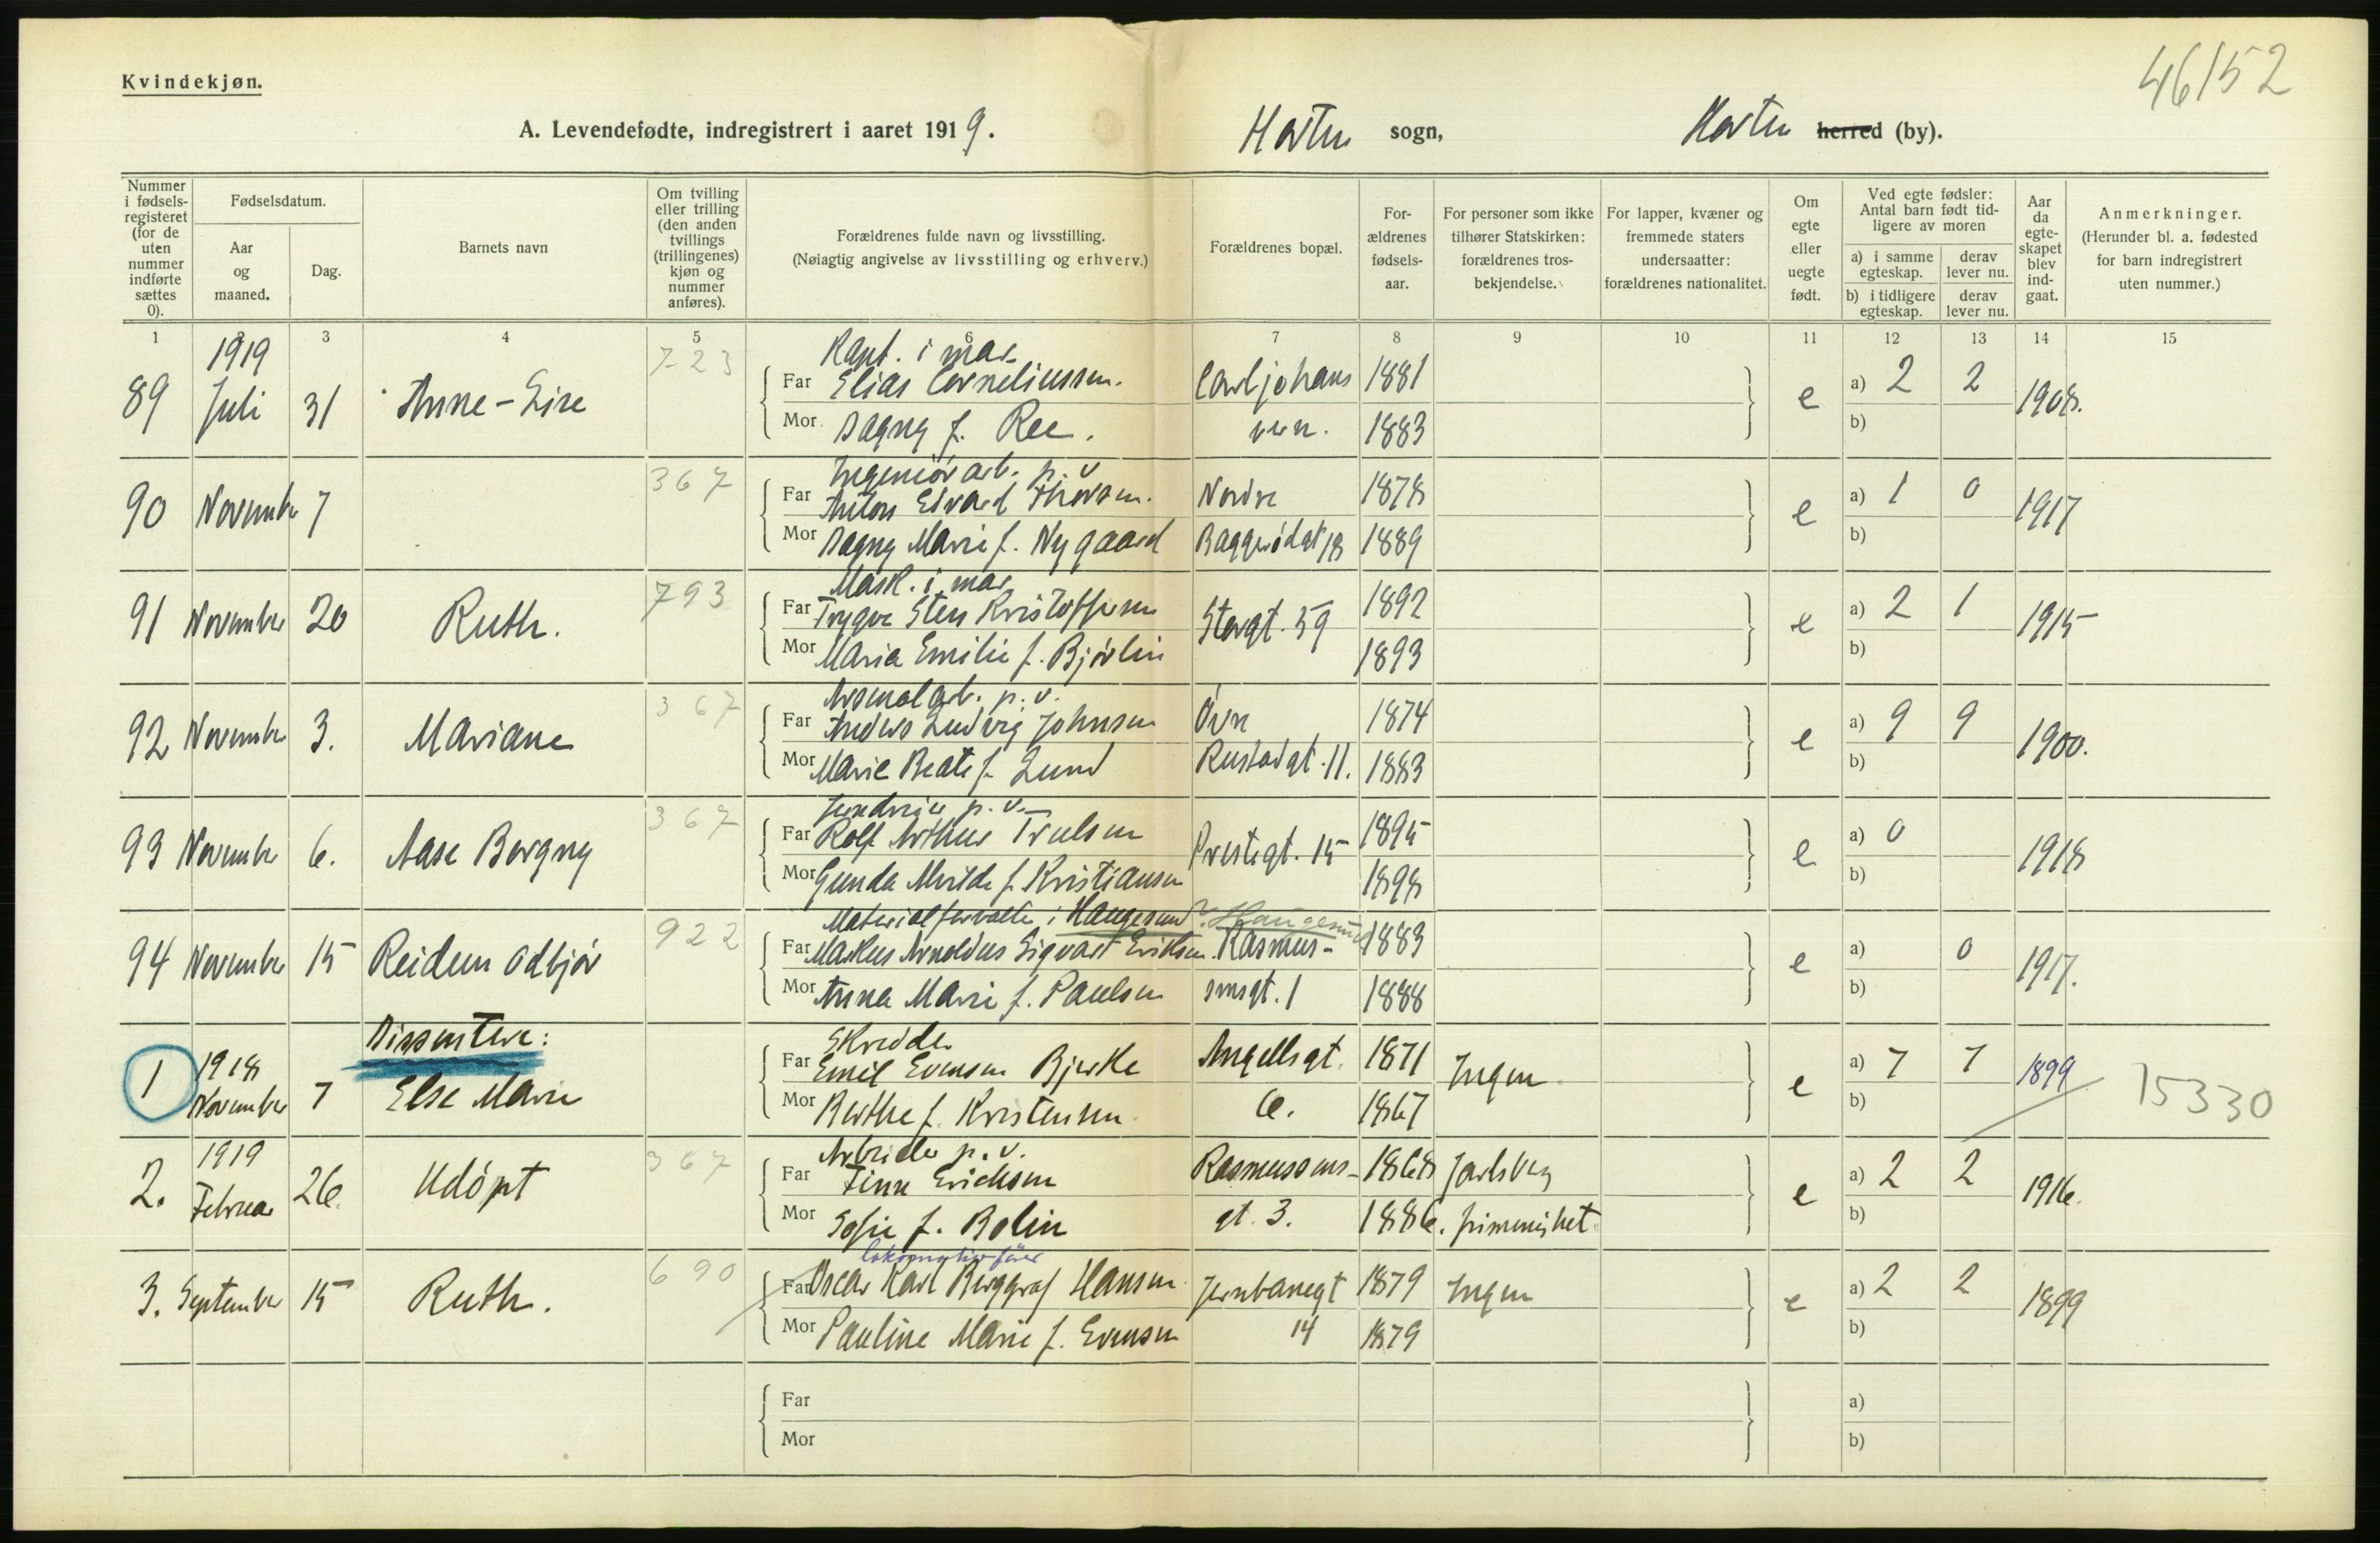 Kvindekjøn.
46152
A. Levendefødte, indregistrert i aaret 1919. Horten sogn, Horten herred (by).
Nummer i fødselsregisteret (for de uten nummer indførte sættes 0).
Fødselsdatum.
Aar og maaned.
Dag.
Barnets navn
Om tvilling eller trilling (den anden tvillings (trillingenes) kjøn og nummer anføres).
Forældrenes fulde navn og livsstilling.
(Nøiagtig angivelse av livsstilling og erhverv.)
Forældrenes bopæl.
Forældrenes fødselsaar.
For personer som ikke tilhører Statskirken: forældrenes trosbekjendelse.
For lapper, kvæner og fremmede staters undersaatter: forældrenes nationalitet.
Om egte eller uegte født.
Ved egte fødsler: Antal barn født tidligere av moren
a) i samme egteskap. derav lever nu.
b) i tidligere egteskap. derav lever nu.
Aar da egteskapet blev indgaat.
Anmerkninger.
(Herunder bl. a. fødested for barn indregistrert uten nummer.)
1 2 3 4 5 6 7 8 9 10 11 12 13 14 15
1919 723 Kapt. i mar.
89 Juli 31 Anne-Lise Far Elias Corneliussen. Carljohans 1881 e a) 2 2 1908.
Mor Dagny f. Ree. vern. 1883 b)
367 Ingeniørarb. p. v
90 November 7 Far Anton Edvard Thorsen. Nordre 1878 e a) 1 0 1917
Mor Dagny Marie f. Nygaard Baggerødgt 18 1889 b)
793 Mask. i mar.
91 November 20 Ruth. Far Trygve Sten Kristoffersen Storgt. 59 1892 e a) 2 1 1915
Mor Maria Emilie f. Bjørlin 1893 b)
367 Arsenalarb. p. v.
92 November 3. Mariane Far Anders Ludvig Johnsen Øvre 1874 e a) 9 9 1900.
Mor Marie Beate f. Lund Rustadgt. 11. 1883 b)
367 Jerndreier p. v.
93 November 6. Aase Borgny Far Rolf Arthur Trulsen Prestegt. 15 1895 e a) 0 1918
Mor Gunda Alvilde f. Kristiansen 1898 b)
922 Materialforvalter i Haugesund ? Haugesund
94 November 15 Reidun Odbjør Far Markus Arnoldus Sigvart Eriksen. Rasmus- 1883 e a) 0 1917.
Mor Anna Marie f. Paulsen sensgt. 1 1888 b)
Dissentere:
1918 Skredder
1 November 7 Else Marie Far Emil Evensen Bjerke Angellsgt. 1871 Ingen e a) 7 7 1899 15330
Mor Berthe f. Kristensen 6. 1867 b)
1919 367 Arbeider p. v.
2. Februar 26. Udøpt Far Finn Erichsen Rasmussens- 1868 Jarlsberg e a) 2 2 1916.
Mor Sofie f. Bolin gt. 3. 1886. frimenighet b)
690 Lokomotivfører
3. September 15 Ruth. Far Oscar Karl Berggraf Hansen Jernbanegt 1879 Ingen e a) 2 2 1899
Mor Pauline Marie f. Evensen 14 1879 b)
Far a)
Mor b)